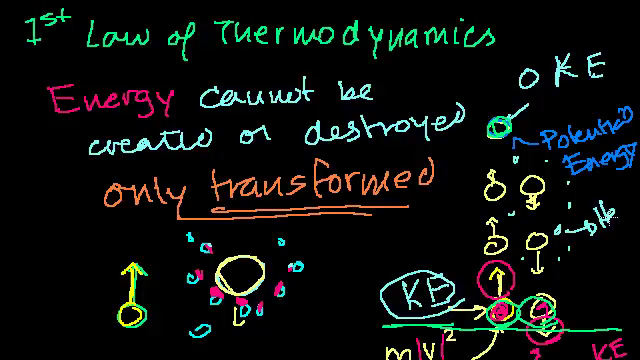 1st Law of Thermodynamics
Energy cannot be
creatio or destroyed
only transformed
0 KE
Potential
Energy
He
KE
m|v|²
KE